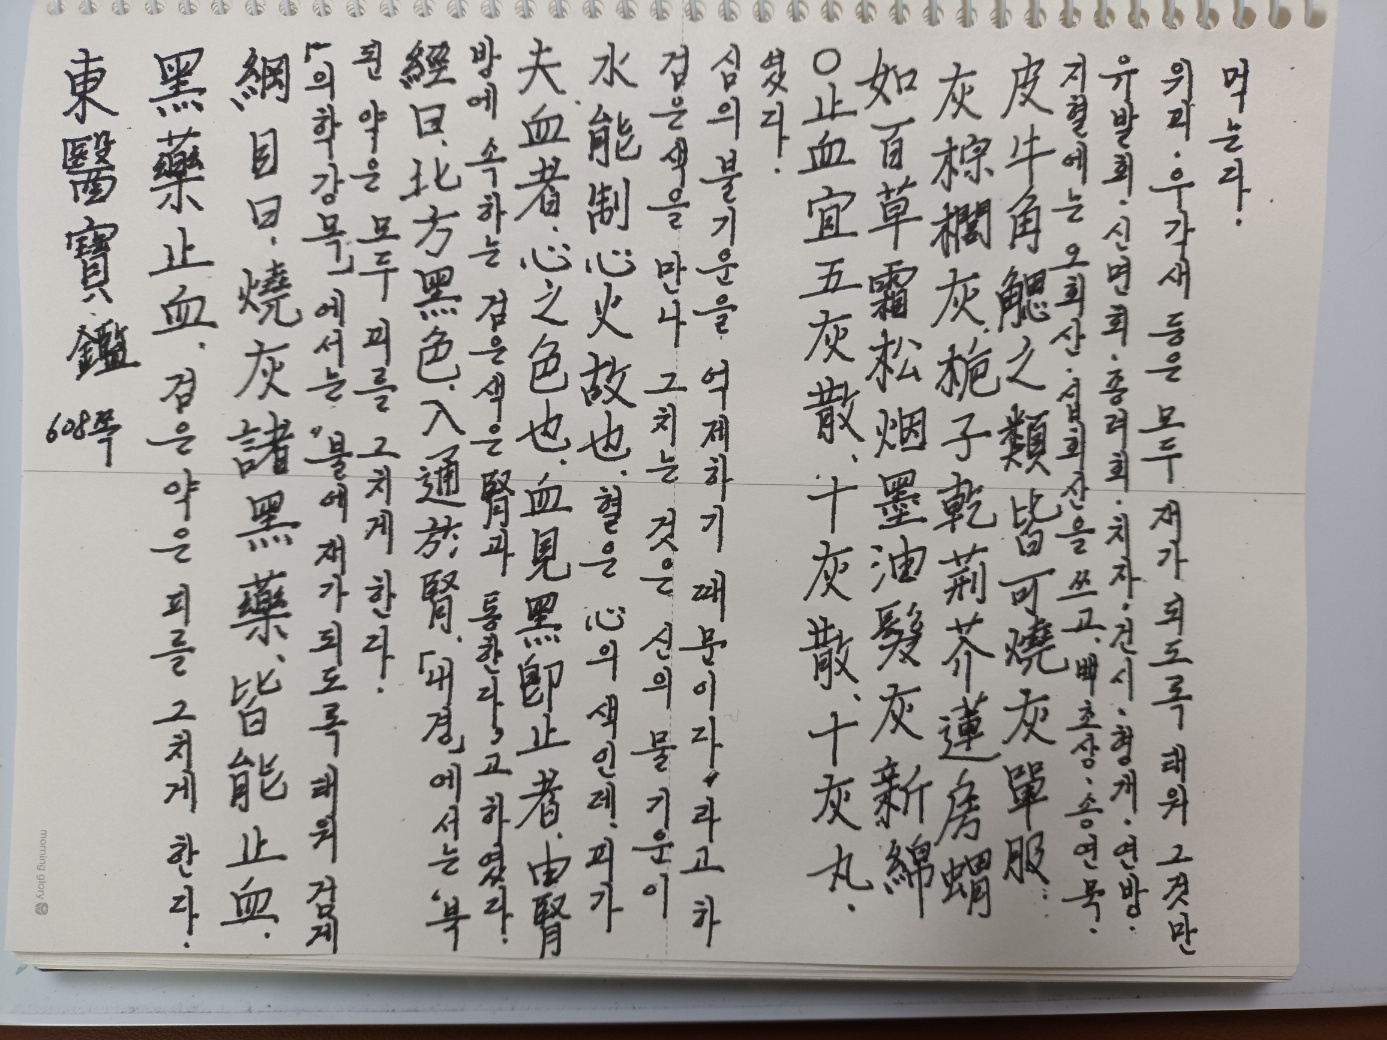 東醫寶鑑 608쪽
黑藥止血. 검은 약은 피를 그치게 한다.
綱目曰, 燒灰諸黑藥, 皆能止血.
「의학강목」에서는 "불에 재가 되도록 태워 검게
된 약은 모두 피를 그치게 한다.
經曰, 北方黑色, 入通於腎, 「내경」에서는 '북
방에 속하는 검은색은 腎과 통한다'고 하였다.
夫血者, 心之色也, 血見黑卽止者, 由腎
水能制心火故也. 혈은 心의 색인데, 피가
검은색을 만나 그치는 것은 신의 물 기운이
심의 불기운을 억제하기 때문이다"라고 하
였다.
○止血宜五灰散, 十灰散, 十灰丸.
如百草霜松烟墨油髮灰新綿
灰棕櫚灰梔子乾荊芥蓮房蝟
皮牛角䚡之類皆可燒灰單服.
지혈에는 오회산·십회산을 쓰고, 빽초상·송연묵·
유발회·신면회·종려회·치자·건시·형개·연방·
위피·우각새 등은 모두 재가 되도록 태워 그것만
먹는다.
morning glory